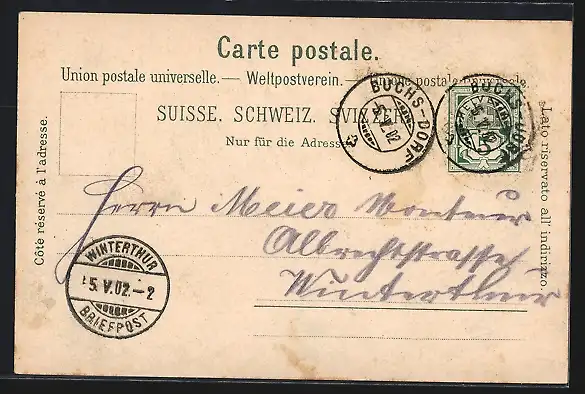 Carte postale.
Union postale universelle. — Weltpostverein. — Unione postale universale.
SUISSE. SCHWEIZ. SVIZZERA.
Nur für die Adresse.
Côté réservé à l'adresse.
Lato riservato all' indirizzo.
BUCHS-DORF
5.V.02
BUCHS-DORF
HELVETIA
5
Herrn Meier Monteur
Albrechtstrasse
Winterthur
WINTERTHUR
5.V.02.-2
BRIEFPOST